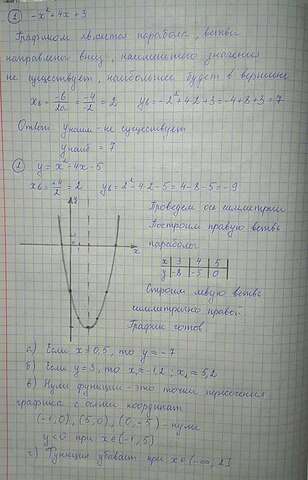 ① -x²+4x+3
Графиком является парабола, ветви
направлены вниз, наименьшего значения
не существует, наибольшее будет в вершине
x₆ = -б/2a = -4/-2 = 2 y₆ = -2²+4·2+3 = -4+8+3 = 7
Ответ: yнаим - не существует
yнаиб = 7
② y = x²-4x-5
x₆ = +4/2 = 2 y₆ = 2²-4·2-5 = 4-8-5 = -9
Проведем ось симметрии
Построим правую ветвь
параболы
x | 3 | 4 | 5
y | -8 | -5 | 0
Строим левую ветвь
симметрично правой
График готов
x
а) Если x = 0,5, то y = -7
б) Если y = 3, то x₁ = -1,2, x₂ = 5,2
в) Нули функции - это точки пересечения
графика с осями координат
(-1,0), (5,0), (0,-5) - нули
y<0 при x∈(-1,5)
г) Функция убывает при x∈(-∞, 2]